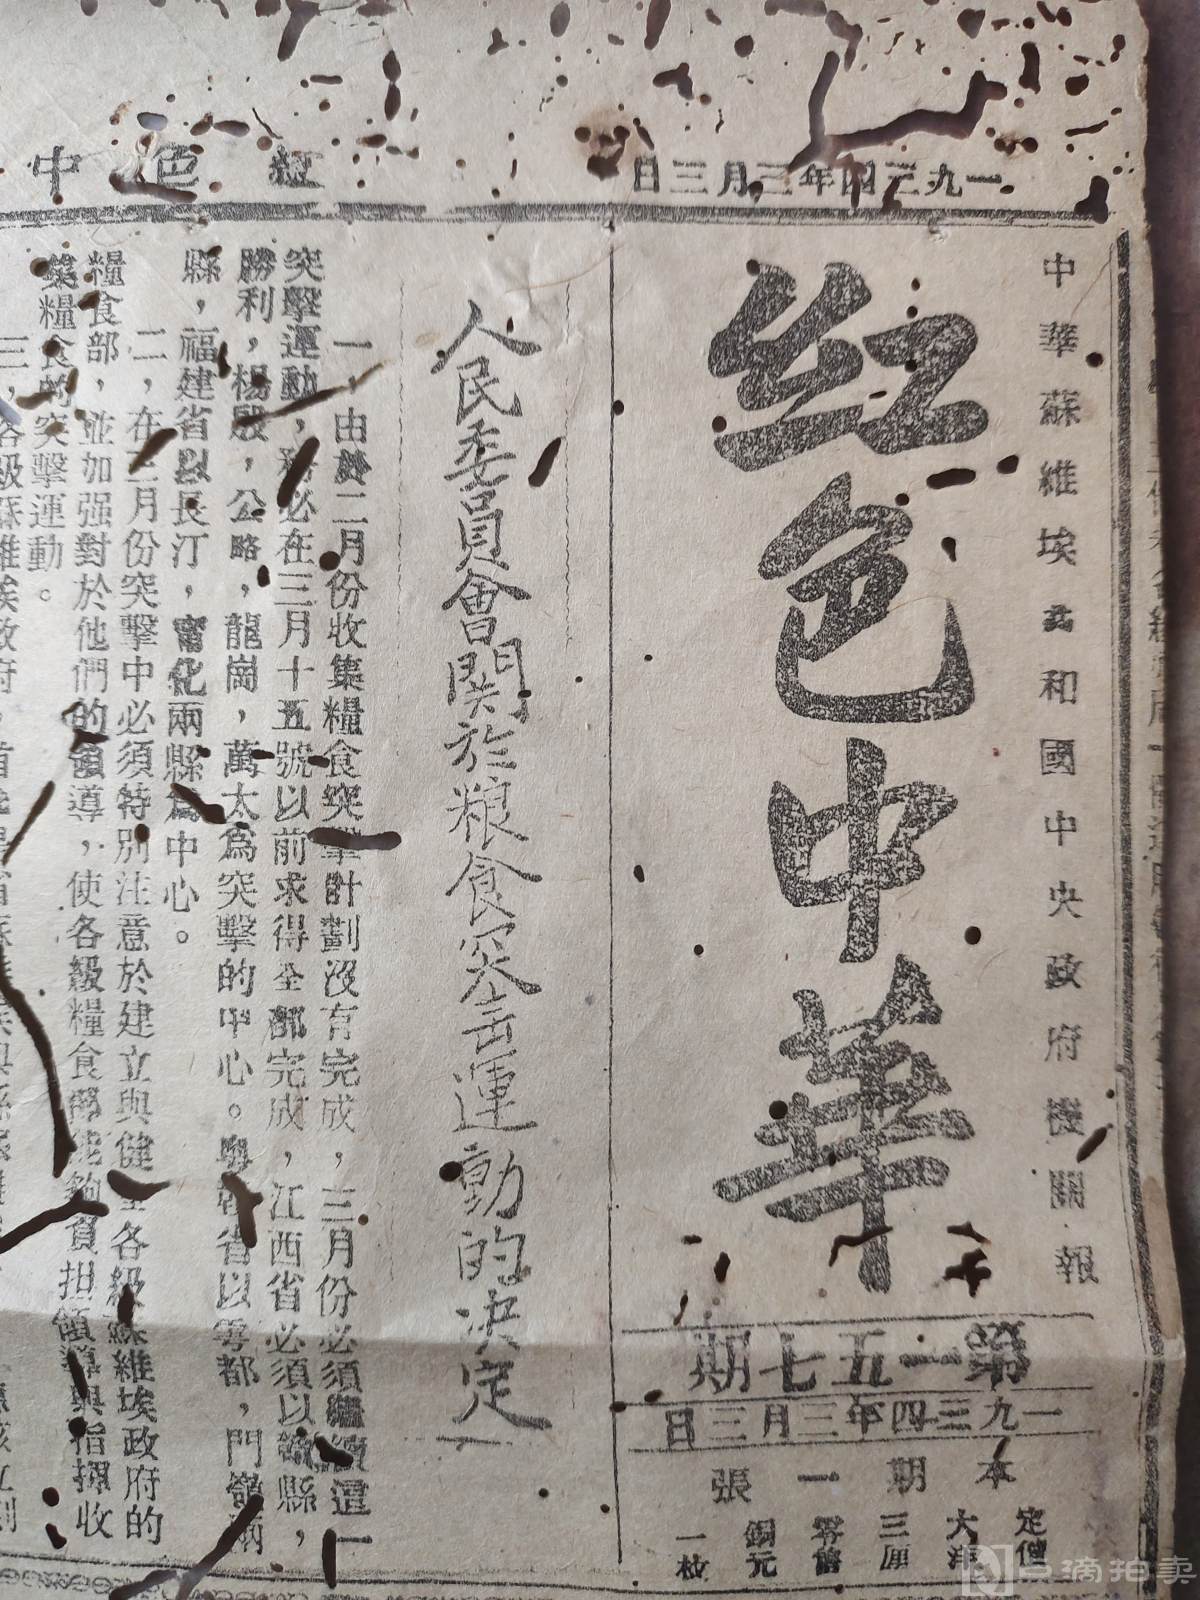 一九三四年三月三日
紅色中
中華蘇維埃共和國中央政府機關報
红色中華
第一五七期
一九三四年三月三日
本期一張
定價
大洋
三厘
零售
銅元
一枚
人民委員會関於粮食突击運動的决定
一，由於二月份收集糧食突擊計劃沒有完成，三月份必須繼續這一
突擊運動，務必在三月十五號以前求得全部完成，江西省必須以縣，
勝利，楊殷，公略，龍崗，萬太爲突擊的中心。粵贛省以雩都，門嶺兩
縣，福建省以長汀，甯化兩縣爲中心。
二，在三月份突擊中必須特別注意於建立與健全各級蘇維埃政府的
糧食部，並加强對於他們的領導，使各級糧食部能夠負担領導與指揮收
集糧食的突擊運動。
三，各級蘇維埃政府，首先是省蘇
口滴拍卖